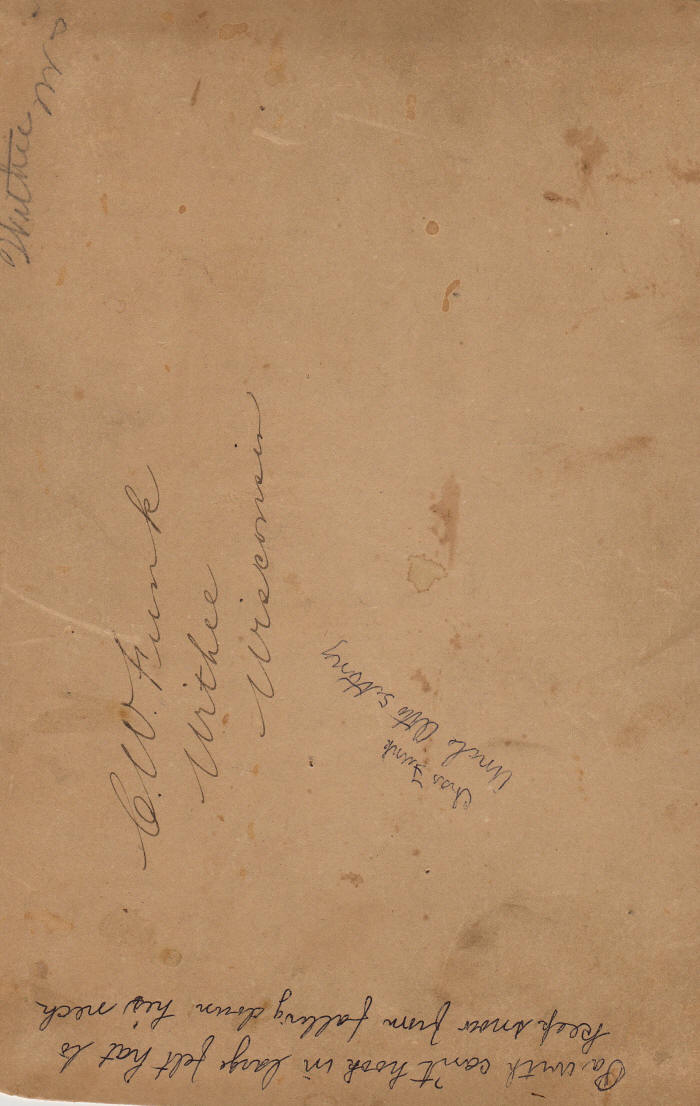 Withee Wis
C. W. Funk
Withee
Wisconsin
Chas Funk
Uncle Otto setting
Pa with can't hook in large felt hat to
keep snow from falling down his neck